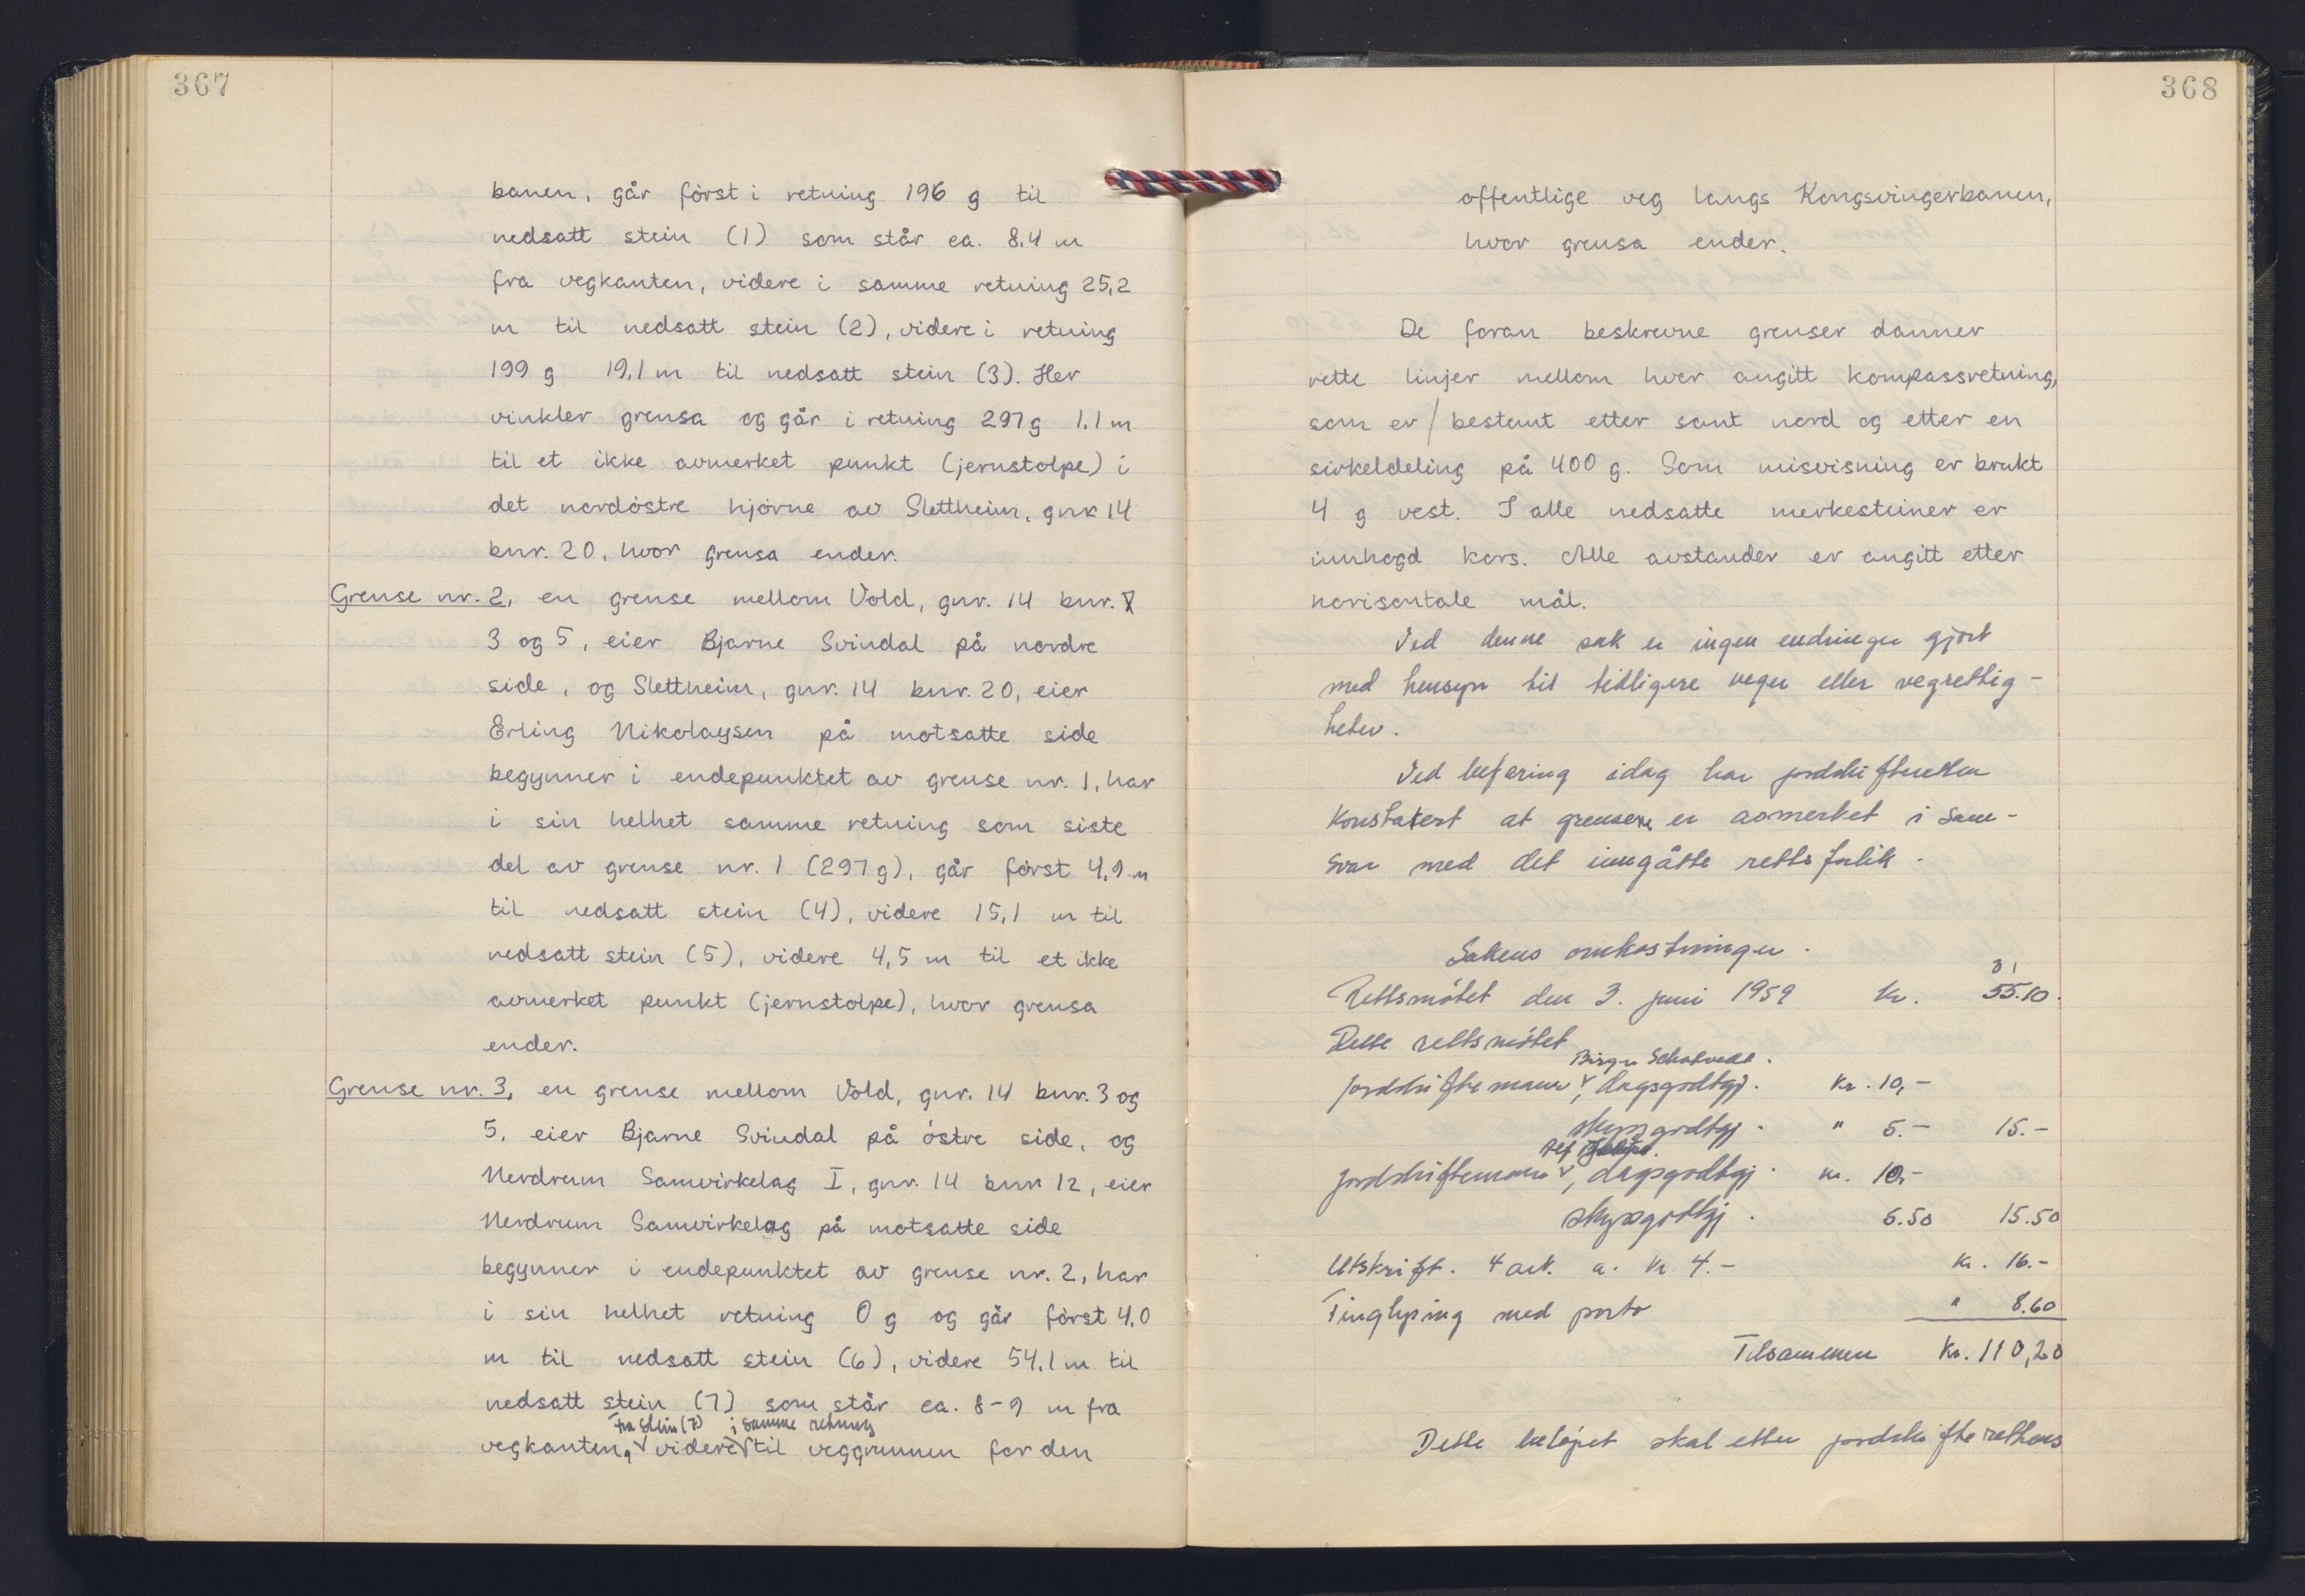 367
banen, går först i retning 196 g til
nedsatt stein (1) som står ca. 8,4 m
fra vegkanten, videre i samme retning 25,2
m til nedsatt stein (2), videre i retning
199 g 19,1 m til nedsatt stein (3). Her
vinkler grensa og går i retning 297 g 1,1 m
til et ikke avmerket punkt (jernstolpe) i
det nordöstre hjörne av Slettheim, gnr 14
bnr. 20, hvor grensa ender.
Grense nr. 2, en grense mellom Vold, gnr. 14 bnr.
3 og 5, eier Bjarne Svindal på nordre
side, og Slettheim, gnr. 14 bnr. 20, eier
Erling Nikolaysen på motsatte side
begynner i endepunktet av grense nr. 1, har
i sin helhet samme retning som siste
del av grense nr. 1 (297 g), går först 4,9 m
til nedsatt stein (4), videre 15,1 m til
nedsatt stein (5), videre 4,5 m til et ikke
avmerket punkt (jernstolpe), hvor grensa
ender.
Grense nr. 3, en grense mellom Vold, gnr. 14 bnr. 3 og
5, eier Bjarne Svindal på östre side, og
Nerdrum Samvirkelag I, gnr. 14 bnr 12, eier
Nerdrum Samvirkelag på motsatte side
begynner i endepunktet av grense nr. 2, har
i sin helhet retning 0 g og går först 4,0
m til nedsatt stein (6), videre 54,1 m til
nedsatt stein (7) som står ca. 8-9 m fra
fra stein (7) i samme retning
vegkanten, videre til veggrunnen for den
368
offentlige veg langs Kongsvingerbanen,
hvor grensa ender.
De foran beskrevne grenser danner
rette linjer mellom hver angitt kompassretning,
som er / bestemt etter sant nord og etter en
sirkeldeling på 400 g. Som misvisning er brukt
4 g vest. I alle nedsatte merkesteiner er
innhogd kors. Alle avstander er angitt etter
horisontale mål.
Ved denne sak er ingen endringer gjört
med hensyn til tidligere veger eller vegrettig-
heter.
Ved befaring idag har jordskifteretten
konstatert at grensene er avmerket i sam-
svar med det inngåtte rettsforlik.
Sakens omkostninger.
31
Rettsmötet den 3. juni 1959 Kr. 55.10.
Dette rettsmötet
Birger
jordskiftemann, dagsgodtgj. Kr. 10,-
skyssgodtgj. " 5.- 15.-
jordskiftemann, dagsgodtgj. Kr. 10,-
skyssgodtgj. 5.50 15.50
Utskrift. 4 ark. a. Kr. 4.- Kr. 16.-
Tinglysing med porto " 8.60
Tilsammen Kr. 110,20
Dette belöpet skal etter jordskifterettens